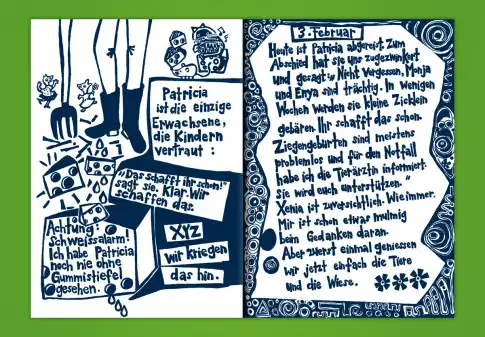 Patricia
ist die einzige
Erwachsene,
die Kindern
vertraut:
"Das schafft ihr schon!"
sagt sie. Klar. Wir
schaffen das.
XYZ
wir kriegen
das hin.
Achtung!
Schweissalarm!
Ich habe Patricia
noch nie ohne
Gummistiefel
gesehen.
3. Februar
Heute ist Patricia abgereist. Zum
Abschied hat sie uns zugezwinkert
und gesagt: "Nicht vergessen, Monja
und Enya sind trächtig. In wenigen
Wochen werden sie kleine Zicklein
gebären. Ihr schafft das schon.
Ziegengeburten sind meistens
problemlos und für den Notfall
habe ich die Tierärztin informiert.
Sie wird euch unterstützen."
Xenia ist zuversichtlich. Wie immer.
Mir ist schon etwas mulmig
beim Gedanken daran.
Aber zuerst einmal geniessen
wir jetzt einfach die Tiere
und die Wiese.